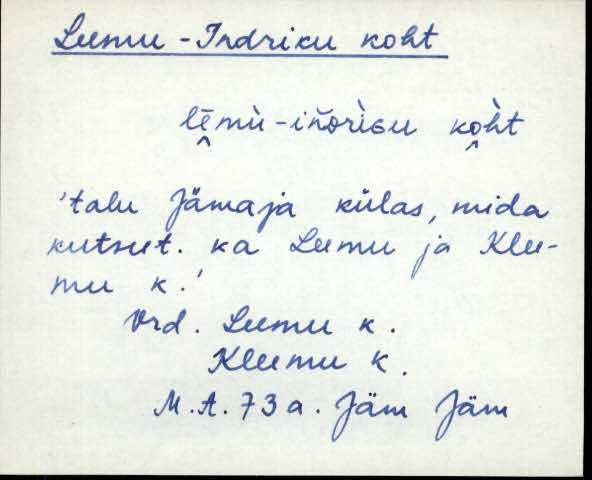 Leemu-Indriku koht
lēmù-iǹdrìGu kòht
'talu Jämaja külas, mida
kutsut. ka Leemu ja Klee-
mu k.'
Vrd. Leemu k.
Kleemu k.
M.A. 73 a. Jäm Jäm